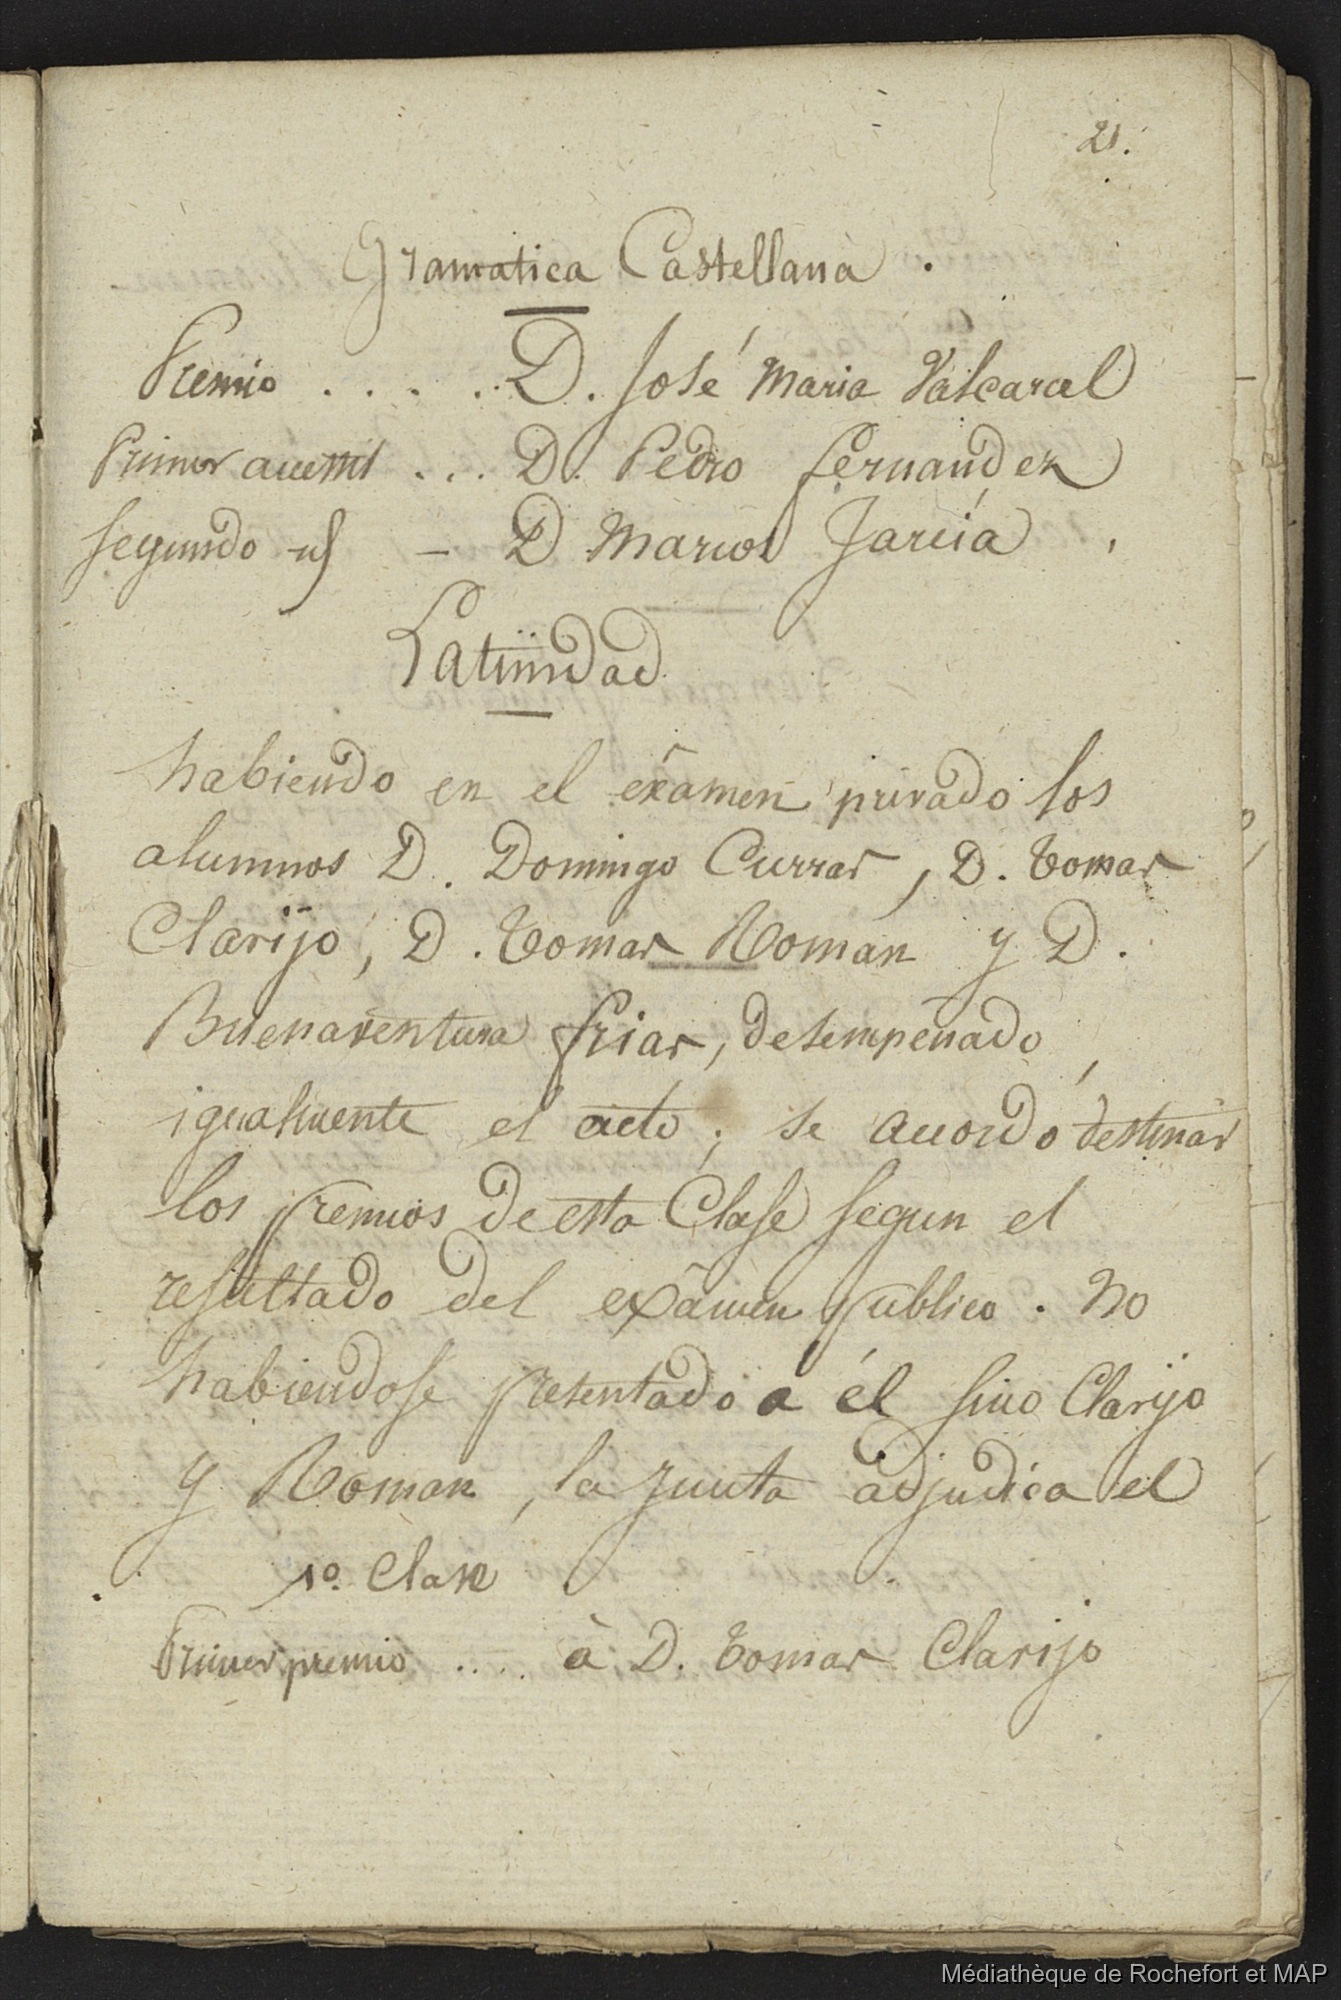 21.
Gramatica Castellana.
Premio . . . . . D. José Maria Valcarcel
Primer accessit . . . D. Pedro Fernandez
Segundo id - D Marcos Garcia
Latinidad
habiendo en el exámen privado los
alumnos D. Domingo Curras, D. Tomas
Clarijo, D. Tomas Roman y D.
Buenaventura Frias, desempeñado
igualmente el acto; se acordó destinar
los premios de esta Clase segun el
resultado del exâmen publico. No
habiendose presentado a él sino Clarijo
y Roman, la Junta adjudica el
1º. Clase
Primer premio .... à D. Tomas Clarijo
Médiathèque de Rochefort et MAP